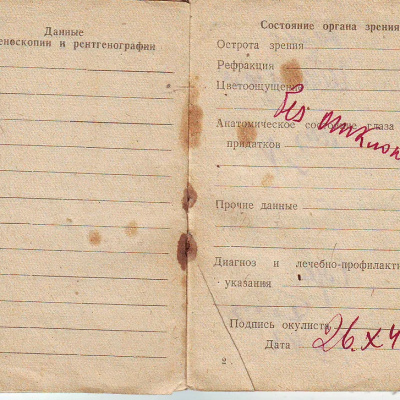 Данные
еноскопии и рентгенографии
Состояние органа зрения
Острота зрения
Рефракция
Цветоощущение
Без отклон
Анатомическое состояние глаза
придатков
Прочие данные
Диагноз и лечебно-профилакти
указания
Подпись окулиста
Дата 26.X 4
2